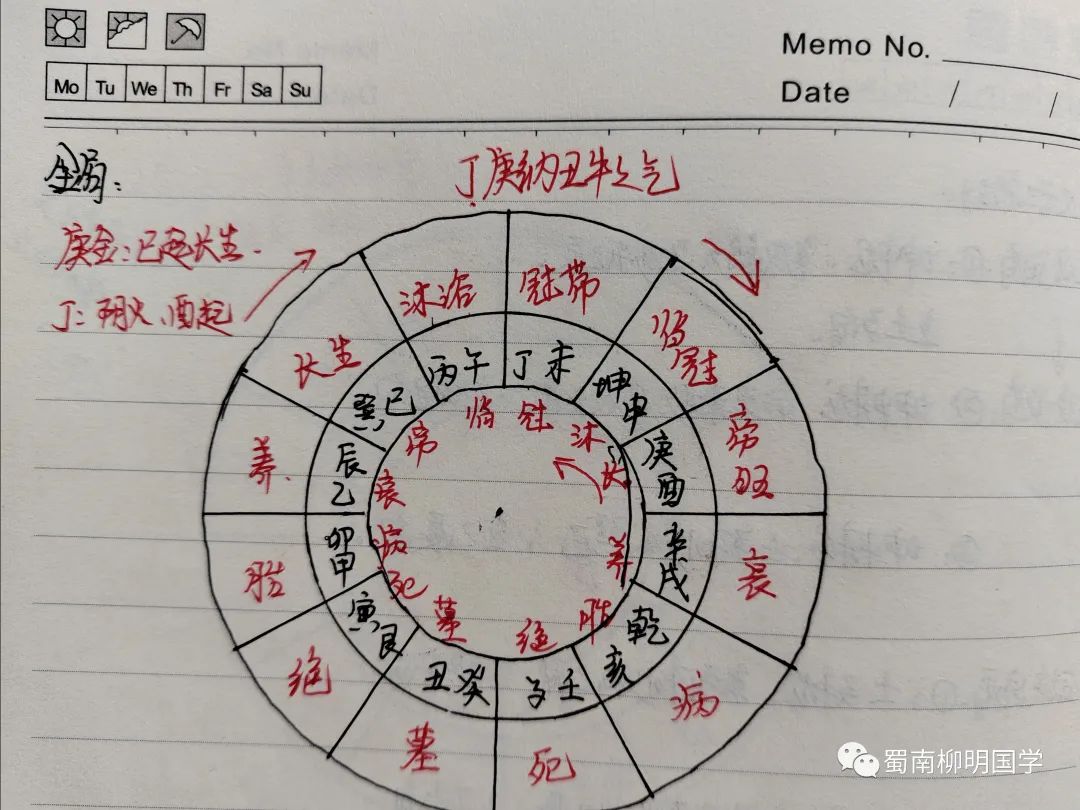 Memo No.
Mo Tu We Th Fr Sa Su
Date / /
金局：
丁庚纳丑牛之气
庚金：巳起长生
丁：阴火、酉起
沐浴 冠带
长生 临冠
养 帝旺
胎 衰
绝 病
墓 死
丙午 丁未
巽巳 坤申
辰乙 庚酉
卯甲 辛戌
寅艮 乾亥
丑癸 子壬
临 冠
帝 沐
衰 长
病 养
死 胎
墓 绝
蜀南柳明国学